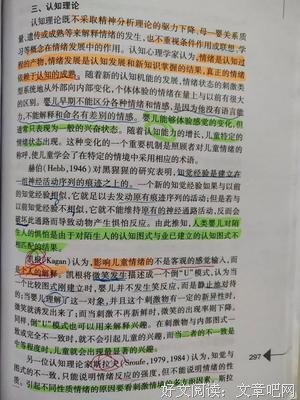 三、认知理论
认知理论既不采用精神分析理论的驱力下降、母—婴关系质
量、遗传或成熟等来解释情绪的发生，也不重视条件作用或联想、学
习等概念在情绪发展中的作用。认知心理学家认为，情绪是认知过
程的产物，情绪发展是认知发展和新知识掌握的结果，真正的情绪
依赖于认知的成熟。随着新的认知机能的发展，情绪状态的刺激类
型系统地从外部向内部变化，个体体验的情绪在量上与以前有很大
的区别。婴儿早期不能区分各种情绪和情感，是因为他没有语言能
力，不能解释和命名有差别的情感。婴儿能够体验感觉的变化，但
通常只表现为一般的兴奋状态。随着认知能力的增长，儿童特定的
情绪状态出现。这种变化的一个重要机制是照顾者对儿童情绪的
称呼，使儿童学会了在特定的情境中采用相应的术语。
赫伯(Hebb,1946)对黑猩猩的研究表明，知觉经验是建立在
一组神经活动序列的痕迹之上的。一个新的知觉经验如果与以前
的知觉经验相似，它就足以去发动原有痕迹序列的活动；但是若与
以前知觉经验不相似，它就不能维持原有的神经通路活动，反而会
破坏此通路而导致动物产生惧怕反应。由此推知，人类婴儿对陌
生人的惧怕是由于对陌生人的认知图式与业已建立的认知图式不
相匹配的结果。
凯根(Kagan)认为，影响儿童情绪的不是客观的感觉输入，而
是个人的解释。凯根将微笑发生描述成一个倒“U”模式，认为当
一个比较图式刚建立时，婴儿并不发生笑反应，而是静止地对待
的；当婴儿理解了这一对象，并且这个刺激物有一定的新异性时，
微笑就诱发出来了；而当刺激不再新异时，微笑的出现率则下降。
同样，倒“U”模式也可以用来解释兴趣。在刺激物与内部图式一
致或完全不一致时，就不会引起儿童的兴趣，而当二者的不一致是
中等程度时，儿童就会出现最显著的兴趣。
另一位认知理论家斯拉夫(Sroufe,1979,1984)认为，知觉与
图式的不一致，只能说明情绪反应的强度，但不能说明情绪的性
质，引起不同性质情绪的原因要看刺激情境的多方面因素。斯拉
297
好文阅读：文章吧网